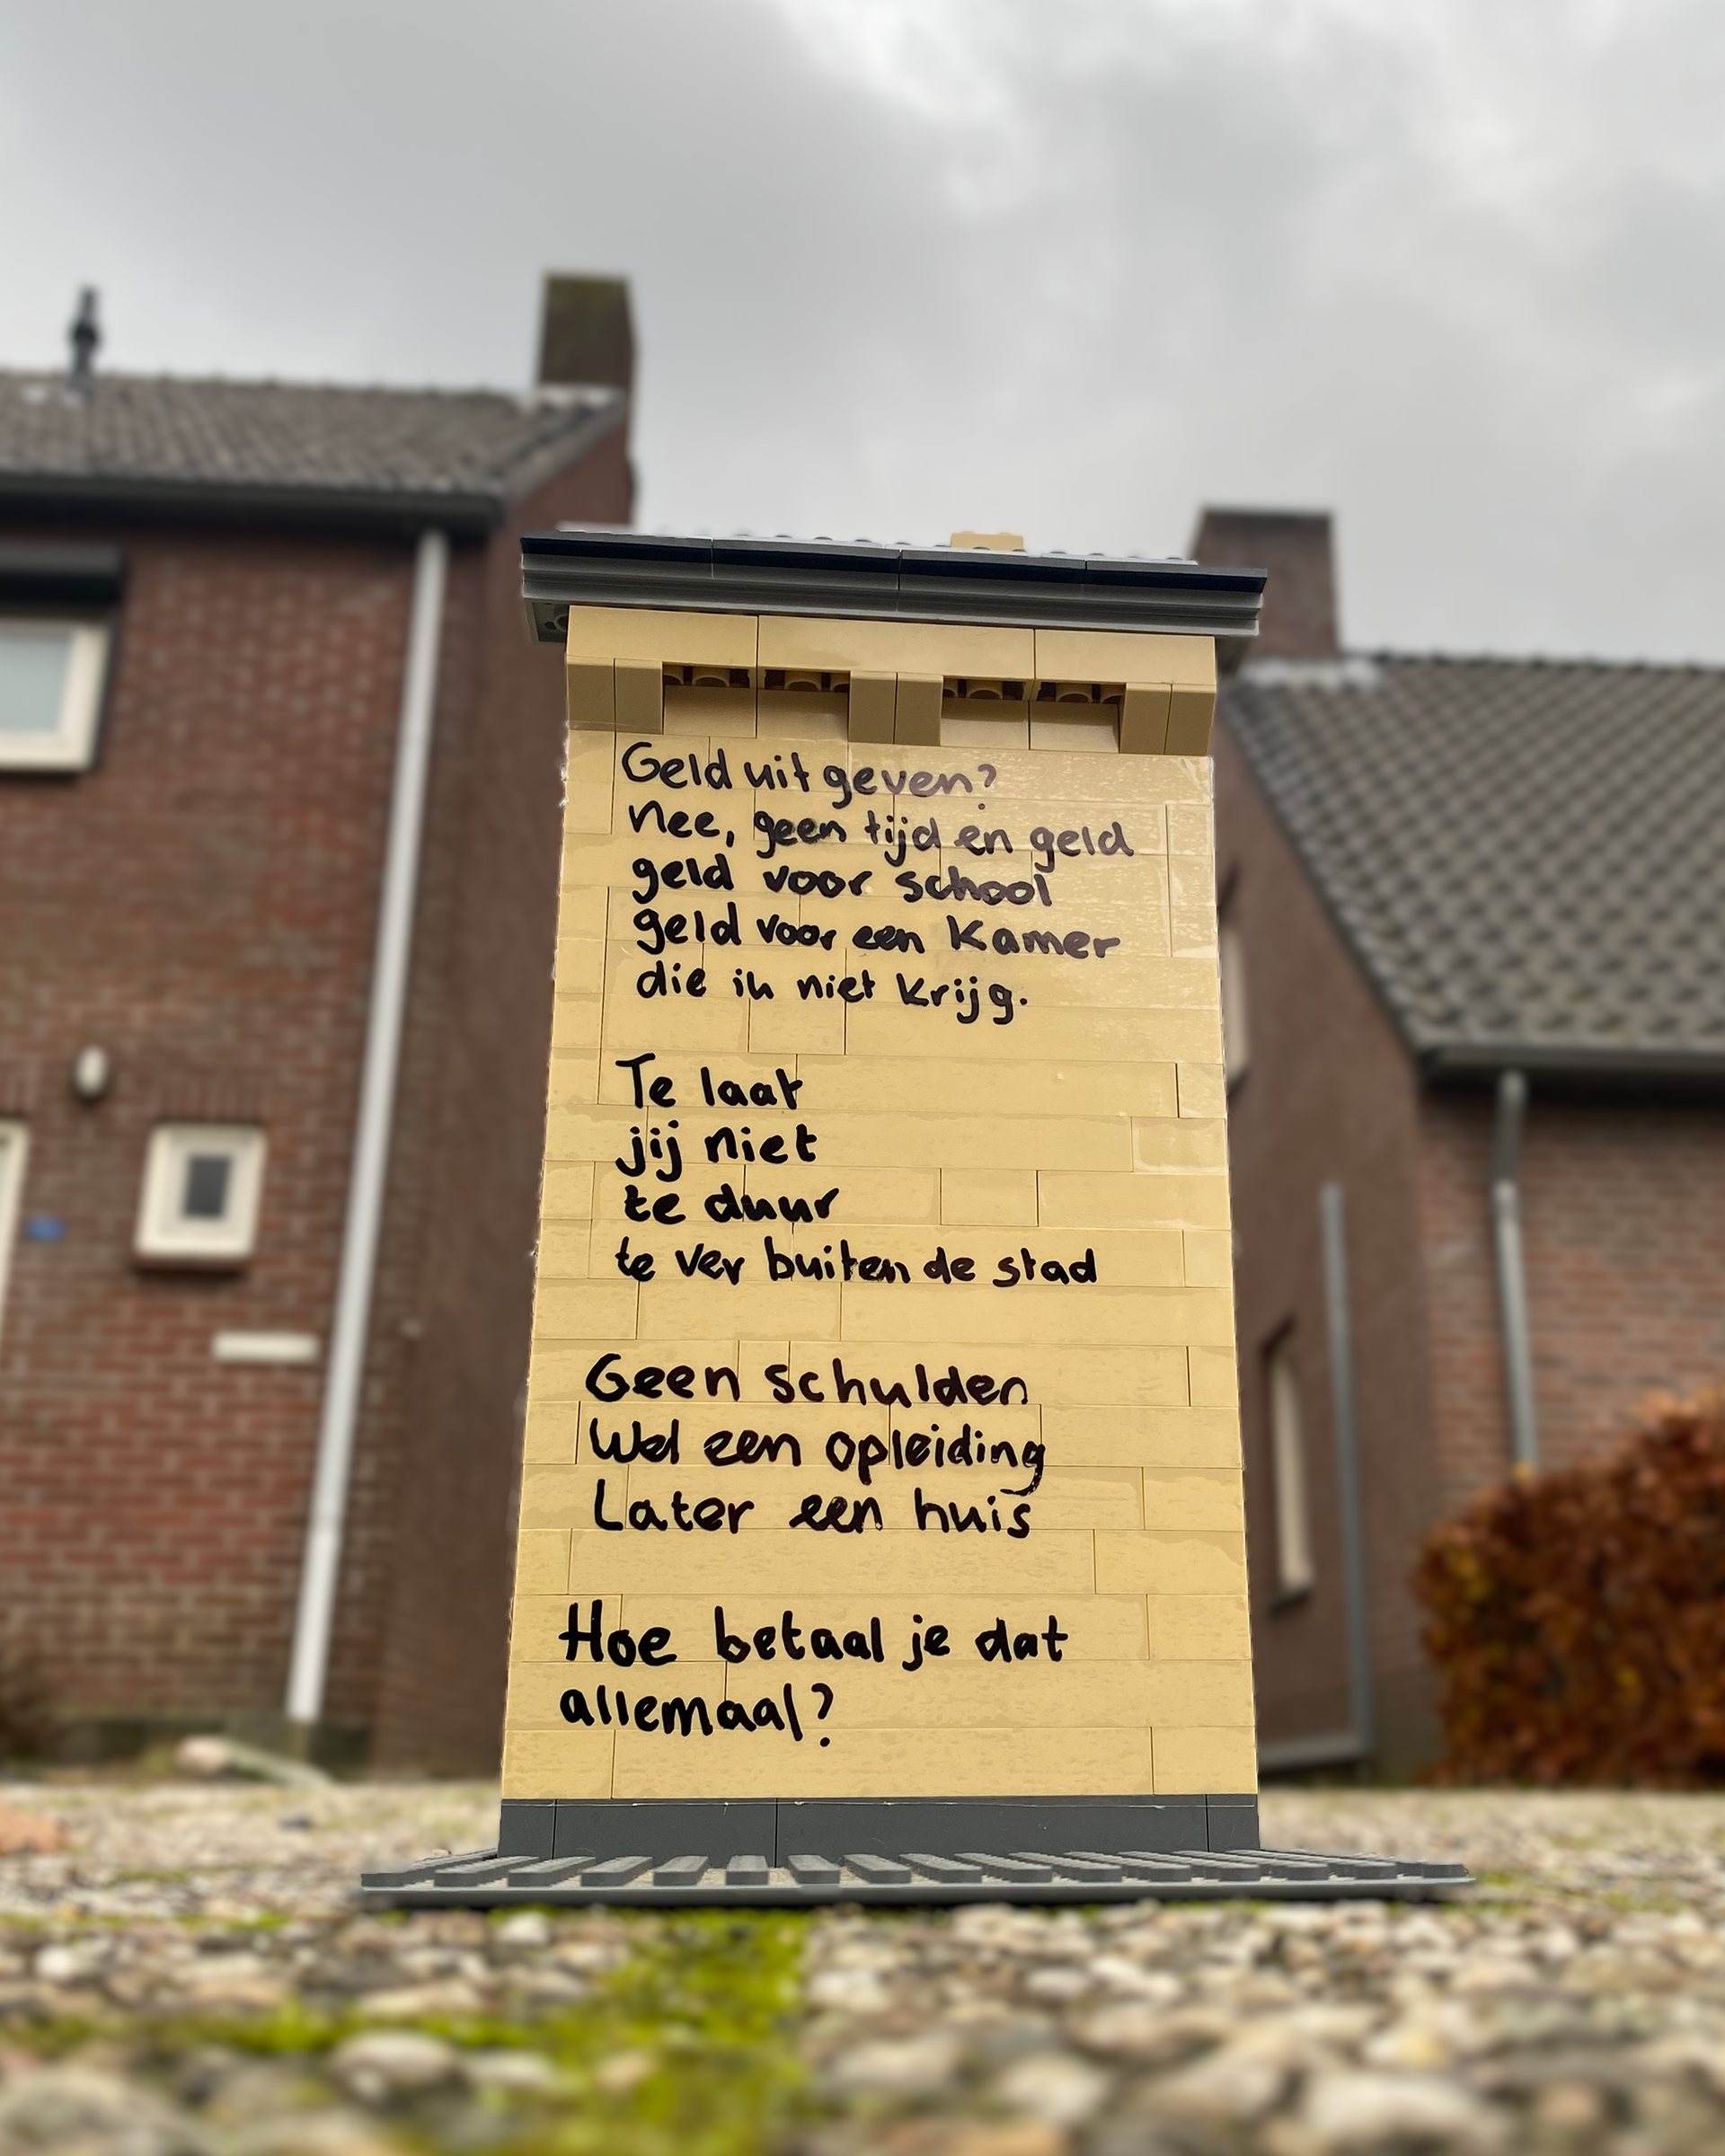 Geld uit geven?
Nee, geen tijd en geld
geld voor school
geld voor een kamer
die ik niet krijg.
Te laat
jij niet
te duur
te ver buiten de stad
Geen schulden
Wel een opleiding
Later een huis
Hoe betaal je dat
allemaal?